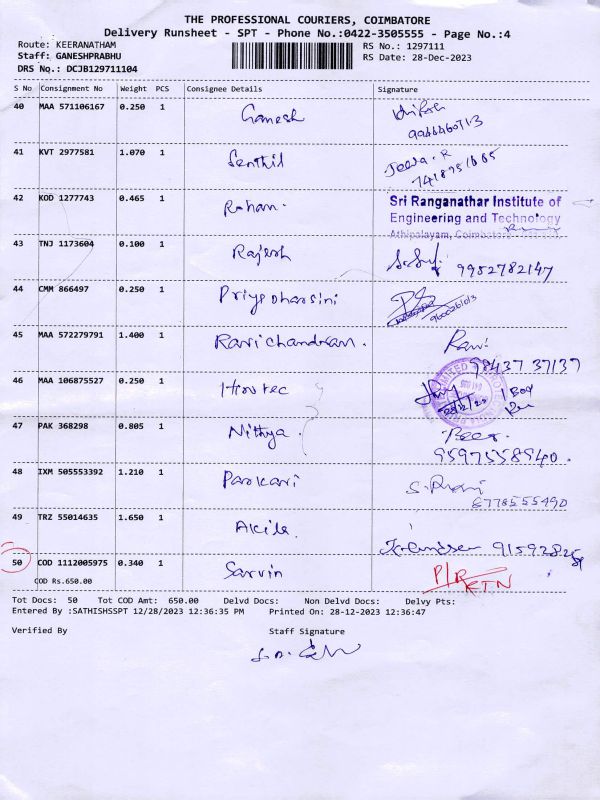 THE PROFESSIONAL COURIERS, COIMBATORE
Delivery Runsheet - SPT - Phone No.:0422-3505555 - Page No.:4
Route: KEERANATHAM
RS No.: 1297111
Staff: GANESHPRABHU
RS Date: 28-Dec-2023
DRS No.: DCJB129711104
S No Consignment No Weight PCS Consignee Details Signature
40 MAA 571106167 0.250 1 Ganesh
41 KVT 2977581 1.070 1 Senthil Jeeva. R
42 KOD 1277743 0.465 1 Rohan. Sri Ranganathar Institute of
Engineering and Technology
Athipalayam, Coimbatore
43 TNJ 1173604 0.100 1 Rajesh 9952782147
44 CMM 866497 0.250 1 Priyadharsini
45 MAA 572279791 1.400 1 Ravichandran. Ravi
98437 37137
46 MAA 106875527 0.250 1
47 PAK 368298 0.805 1 Nithya.
9597558940.
48 IXM 505553392 1.210 1 S. Rani
49 TRZ 55014635 1.650 1 Akila
50 COD 1112005975 0.340 1 Sarvin P/R
COD Rs.650.00 KTN
Tot Docs: 50 Tot COD Amt: 650.00 Delvd Docs: Non Delvd Docs: Delvy Pts:
Entered By :SATHISHSSPT 12/28/2023 12:36:35 PM Printed On: 28-12-2023 12:36:47
Verified By Staff Signature